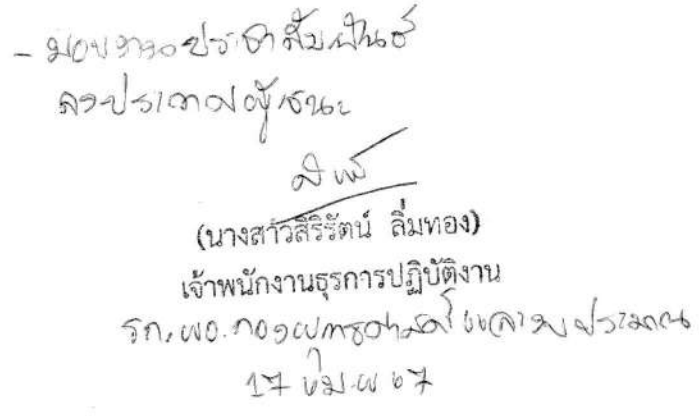 - มอบงานประชาสัมพันธ์
ลงประกาศผู้ชนะ
(นางสาวสิริรัตน์ ลิ่มทอง)
เจ้าพนักงานธุรการปฏิบัติงาน
รก.ผอ.กองยุทธศาสตร์และงบประมาณ
17 เม.ย 67